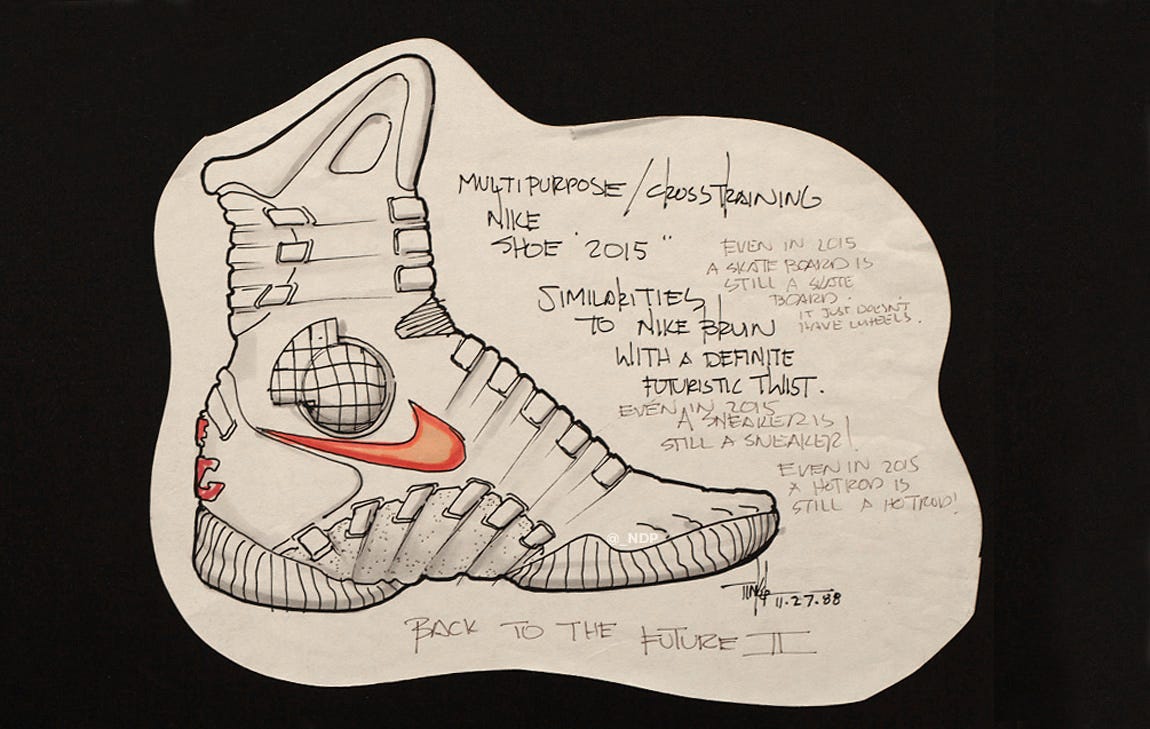 MULTIPURPOSE / CROSSTRAINING
NIKE
SHOE "2015"
EVEN IN 2015
A SKATE BOARD IS
STILL A SKATE
BOARD.
IT JUST DOESN'T
HAVE WHEELS.
SIMILARITIES
TO NIKE BRUIN
WITH A DEFINITE
FUTURISTIC TWIST.
EVEN IN 2015
A SNEAKER IS
STILL A SNEAKER!
EVEN IN 2015
A HOTROD IS
STILL A HOTROD!
@_NDP
11.27.88
BACK TO THE FUTURE II